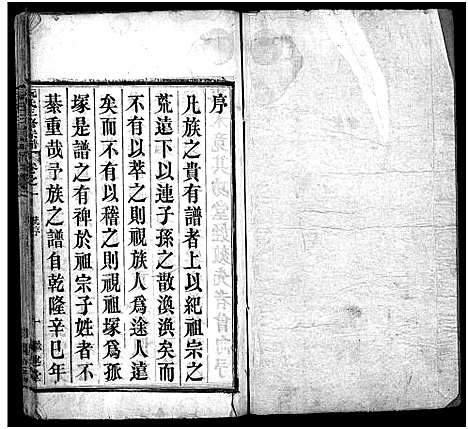 序
凡族之貴有譜者上以紀祖宗之
荒遠下以連子孫之散渙渙矣而
不有以萃之則視族人爲途人遠
矣而不有以稽之則視祖塚爲孤
塚是譜之有裨於祖宗子姓者不
綦重哉予族之譜自乾隆辛巳年